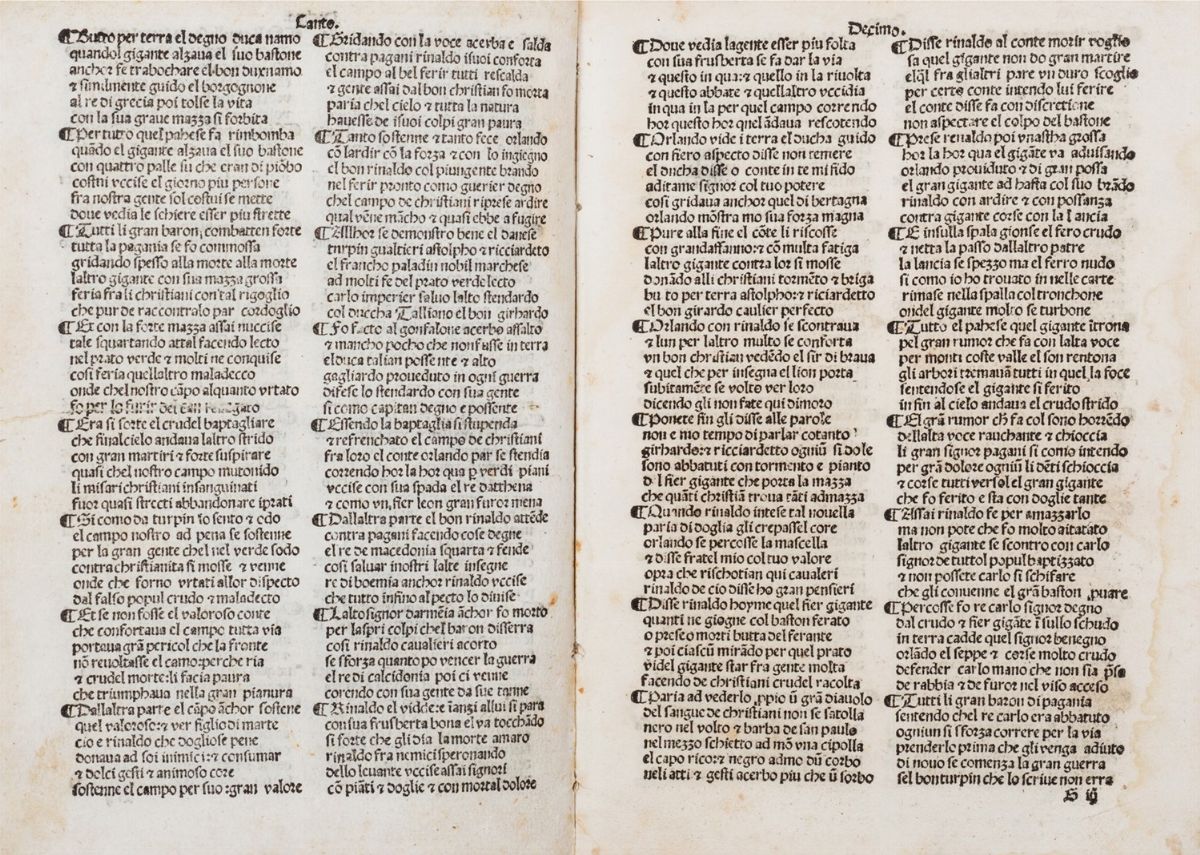 Canto.
¶Butto per terra el degno duca namo
quandol gigante alzaua el suo bastone
anchor fe trabochare el bon duxnamo
⁊ similmente guido el borgognone
al re di grecia poi tolse la vita
con la sua graue mazza si forbita
¶Per tutto quel pahese fa rimbomba
quãdo el gigante alzaua el suo bastone
con quattro palle su che eran di piõbo
costui vccise el giorno piu persone
fra nostra gente sol costui se mette
doue vedia le schiere esser piu strette
¶Tutti li gran baroni combatten forte
tutta la pagania se fo commossa
gridando spesso alla morte alla morte
laltro gigante con sua mazza grossa
feria fra li christiani con tal rigoglio
che pur de raccontralo par cordoglio
¶Et con la forte mazza assai nuccise
tale squartando attal facendo lecto
nel prato verde ⁊ molti ne conquise
cosi feria quellaltro maladecco
onde chel nostro cãpo alquanto vrtato
fo per lo furir dei can renegato
¶Era si forte el crudel baptagliare
che finalcielo andaua laltro strido
con gran martiri ⁊ forte suspirare
quasi chel nostro campo mutonido
li misari christiani insanguinati
fuor quasi strecti abbandonare iprati
¶Si como da turpin io sento ⁊ odo
el campo nostro ad pena se sostenne
per la gran gente chel nel verde sodo
contra christianita si mosse ⁊ venne
onde che forno vrtati allor dispecto
dal falso popul crudo ⁊ maladecto
¶Et se non fosse el valoroso conte
che confortaua el campo tutta via
portaua grã pericol che la fronte
nõ reuoltasse el camo:perche ria
⁊ crudel morte:li facia paura
che triumphaua nella gran pianura
¶Dallaltra parte el cãpo ãchor sostene
quel valoroso:⁊ ver figlio di marte
cio e rinaldo che dogliose pene
donaua ad soi inimici:⁊ consumar
⁊ dolci gesti ⁊ animoso core
sostenne el campo per suo :gran valore
¶Gridando con la voce acerba e salda
contra pagani rinaldo isuoi conforta
el campo al bel ferir tutti rescalda
⁊ gente assai dal bon christian fo morta
paria chel cielo ⁊ tutta la natura
hauesse de isuoi colpi gran paura
¶Tanto sostenne ⁊ tanto fece orlando
cõ lardir cõ la forza ⁊ con lo ingiegno
el bon rinaldo col piungente brando
nel ferir pronto como guerier degno
chel campo de christiani riprese ardire
qual vẽne mãcho ⁊ quasi ebbe a fugire
¶Allhor se demonstro bene el danese
turpin gualtieri astolpho ⁊ ricciardeto
el francho paladin nobil marchese
ad molti fe del prato verde lecto
carlo imperier saluo lalto stendardo
col duccha Talliano el bon girhardo
¶Fo facto al gonfalone acerbo assalto
⁊ mancho pocho che non fusse in terra
el duca talian possente ⁊ alto
gagliardo proueduto in ogni guerra
difese lo stendardo con sua gente
si como capitan degno e possente
¶Essendo la baptaglia si stupenda
⁊ refrenchato el campo de christiani
fra loro el conte orlando par se stendia
correndo hor la hor qua p verdi piani
vccise con sua spada el re datthena
⁊ como vn fier leon gran furor mena
¶Dallaltra parte el bon rinaldo attẽde
contra pagani facendo cose degne
el re de macedonia squarta ⁊ fende
cosi saluar inostri lalte insegne
re di boemia anchor rinaldo vccise
che tutto infino al pecto lo diuise
¶Laltosignor darmẽia ãchor fo morto
per laspri colpi chel baron disserra
cosi rinaldo caualieri acorto
se sforza quanto po vencer la guerra
el re di calcidonia poi ci venne
corendo con sua gente da sue tanne
¶Rinaldo el vidde:⁊ ianzi allui si para
con sua frusberta bona el va tocchãdo
si forte che gli dia la morte amaro
rinaldo fra nemici speronando
dello leuante vccise assai signori
cõ piãti ⁊ doglie ⁊ con mortal dolore
Decimo.
Doue vedia lagente esser piu folta
con sua frusberta se fa dar la via
⁊ questo in qua:⁊ quello in la riuolta
⁊ questo abbate ⁊ quellaltro vccidia
in qua in la per quel campo correndo
hor questo hor quel ãdaua rescotendo
¶Orlando vide i terra el ducha guido
con fiero aspecto disse non temere
el ducha disse o conte in te mi fido
aditame signor col tuo potere
cosi gridaua anchor quel di bertagna
orlando mõstra mo sua forza magna
¶Pure alla fine el cõte li riscosse
con grandaffanno:⁊ cõ multa fatiga
laltro gigante contra lor si mosse
donãdo alli christiani tormẽto ⁊ briga
butto per terra astolpho:⁊ riciardetto
el bon girardo caulier perfecto
¶Orlando con rinaldo se scontraua
⁊ lun per laltro multo se conforta
vn bon christian vedẽdo el sir di braua
⁊ quel che per insegna el lion porta
subitamẽre se volto ver loro
dicendo gli non fate qui dimoro
¶Ponete fin gli disse alle parole
non e mo tempo di parlar cotanto
girhardo:⁊ ricciardetto ogniũ si dole
sono abbatuti con tormento e pianto
dal fier gigante che porta la mazza
che quãti christiã troua tãti admazza
¶Quando rinaldo intese tal nouella
paria di doglia gli crepassel core
orlando se percosse la mascella
⁊ disse fratel mio col tuo valore
opra che rischotian qui caualeri
rinaldo de cio disse ho gran pensieri
¶Disse rinaldo hoyme quel fier gigante
quanti ne giogne col baston ferato
o preso o morti butta del ferante
⁊ poi ciascũ mirãdo per quel prato
videl gigante star fra gente molta
facendo de christiani crudel racolta
¶Paria ad vederlo ppio ũ grã diauolo
del sangue de christiani non se satolla
nero nel volto ⁊ barba de san paulo
nel mezzo schietto ad mõ vna cipolla
el capo rico:⁊ negro admo dũ corbo
neli atti ⁊ gesti acerbo piu che ũ sorbo
¶Disse rinaldo al conte morir voglio
sa quel gigante non do gran martire
elql fra glialtri pare vn duro scoglio
per certo conte intendo lui ferire
el conte disse fa con discretione
non aspectare el colpo del bastone
¶Prese renaldo poi vnastha grossa
hor la hor qua el gigãte va aduisando
orlando prouiduto ⁊ di gran possa
el gran gigante ad hasta col suo brãdo
rinaldo con ardire ⁊ con possanza
contra gigante corse con la lancia
¶E insulla spala gionse el fero crudo
⁊ netta la passo dallaltro patre
la lancia se spezzo ma el ferro nudo
si como io ho trouato in nelle carte
rimase nella spalla col tronchone
ondel gigante molto se turbone
¶Tutto el pahese quel gigante ĩtrona
pel gran rumor che fa con lalta voce
per monti coste valle el son rentona
gli arbori tremauã tutti in quel la foce
sentendose el gigante si ferito
in fin al cielo andaua el crudo strido
¶El grã rumor ch fa col sono horrẽdo
dellalta voce rauchante ⁊ chioccia
li gran signor pagani si conio intendo
per grã dolore ogniũ li dẽti schioccia
⁊ corse tutti versol el gran gigante
che fo ferito e sta con doglie tante
¶Assai rinaldo fe per amazzarlo
ma non pote che fo molto aitatato
laltro gigante se scontro con carlo
signor de tuttol popul baptizzato
⁊ non possete carlo si schifare
che gli conuenne el grã baston puare
¶Percosse fo re carlo signor degno
dal crudo ⁊ fier gigãte ĩ sullo schudo
in terra cadde quel signor benegno
orlãdo el seppe ⁊ corse molto crudo
defender carlo mano che non sia pso
de rabbia ⁊ de furor nel viso acceso
¶Tutti li gran baron di pagania
sentendo chel re carlo era abbatuto
ogniun si sforza correr per la via
prenderlo prima che gli venga adiuto
di nouo se comenza la gran guerra
sel bon turpin che lo scriue non erra
S iij